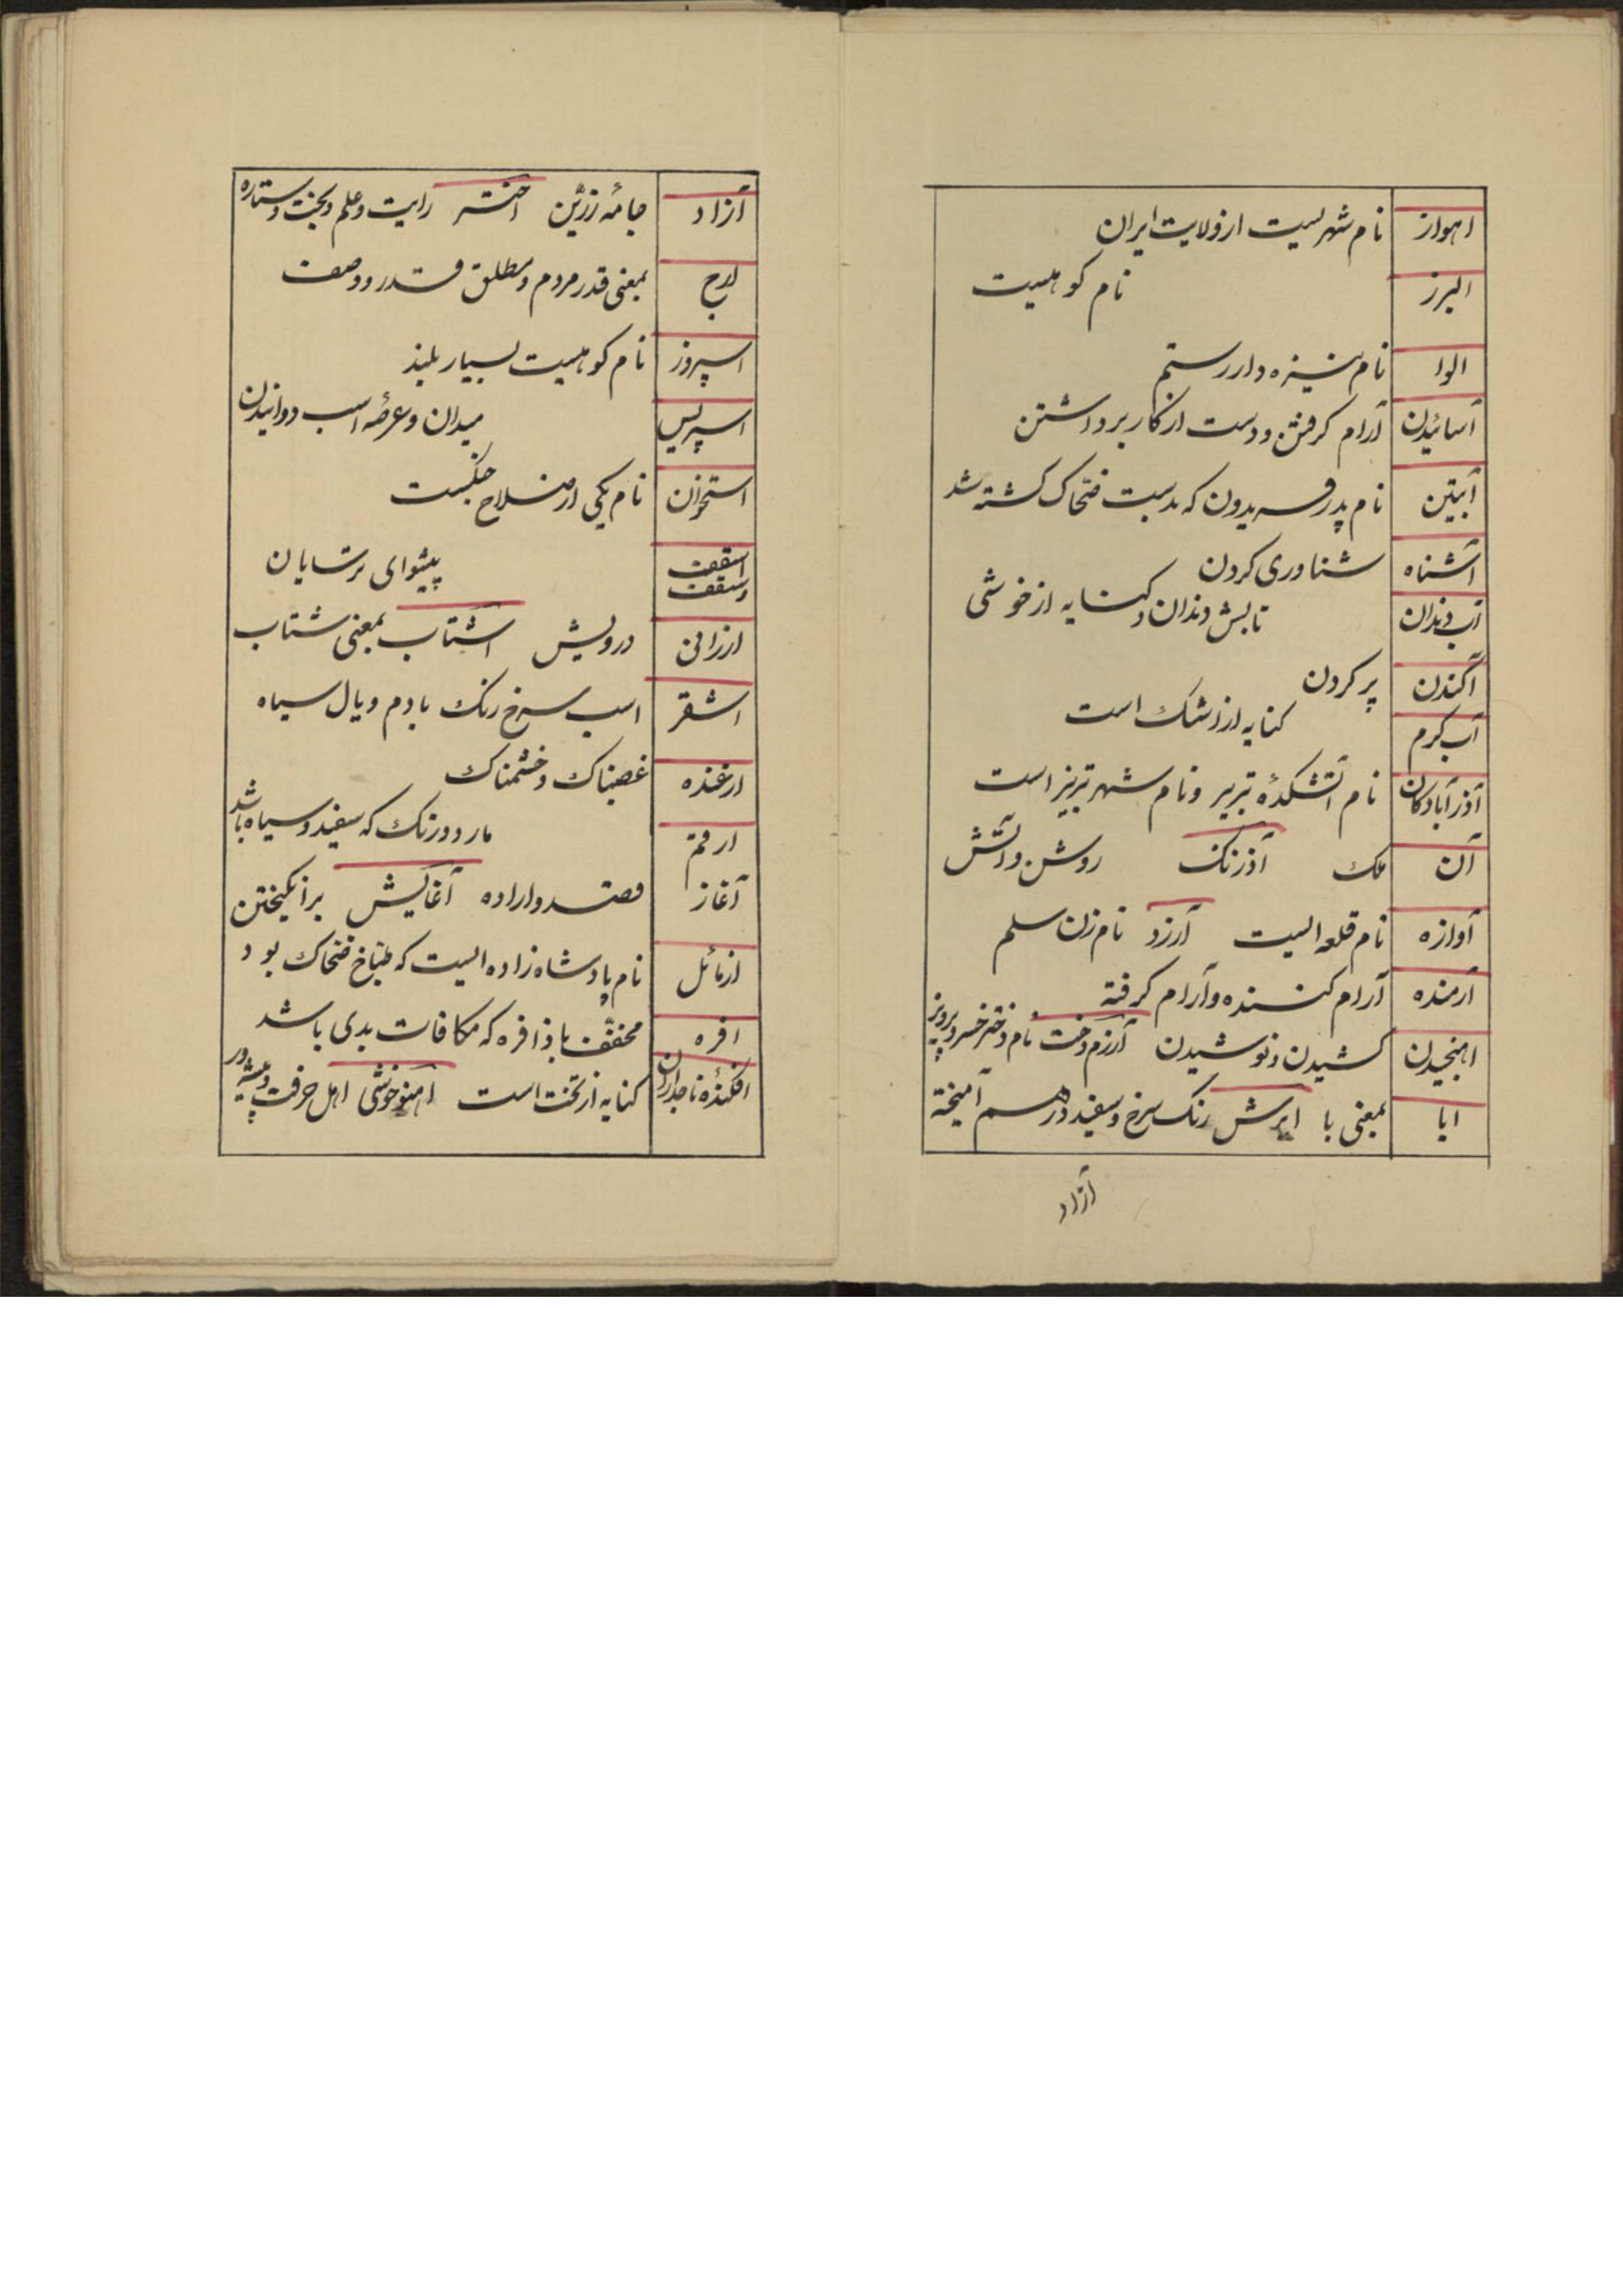 اهواز نام شهریست از ولایت ایران
البرز نام کوهیست
الوا نام نیزه دار رستم
آسائیدن آرام گرفتن و دست از کار برداشتن
آبتین نام پدر فریدون که بدست ضحاک کشته شد
آشناه شناوری کردن
آب دندان تابش دندان و کنایه از خوشی
آکندن پر کردن
آب کرم کنایه از اشک است
آذرآبادکان نام آتشکدهٔ تبریز و نام شهر تبریز است
آن ملک آذرنک روشن و آتش
آوازه نام قلعه ایست آرزد نام زن سلم
آرمنده آرام کننده و آرام کرفته
اهنجیدن کشیدن و نوشیدن آرزم دخت نام دختر خسرو پرویز
ابا بمعنی با ابرش رنک سرخ و سفید در هم آمیخته
آزاد
آزاد جامهٔ زرّین اختر رایت و علم و بخت و ستاره
ارج بمعنی قدر مردم و مطلق قدر و وصف
اسپروز نام کوهیست بسیار بلند
اسپریس میدان و عرصهٔ اسب دوانیدن
استخوان نام یکی از سلاح جنکست
اسقف وسقف پیشوای ترسایان
ارزانی درویش اشتاب بمعنی شتاب
اشقر اسب سرخ رنک با دم و یال سیاه
ارغنده غصبناک و خشمناک
ارقم مار دو رنک که سفید و سیاه باشد
آغاز قصد و اراده آغالیش برانکیختن
ازمائل نام پادشاه زاده ایست که طبّاخ ضحاک بود
افره مخفّف باذافره که مکافات بدی باشد
افکندهٔ تاجداران کنایه از تخت است اهنوخوشی اهل حرفت و پیشه ور